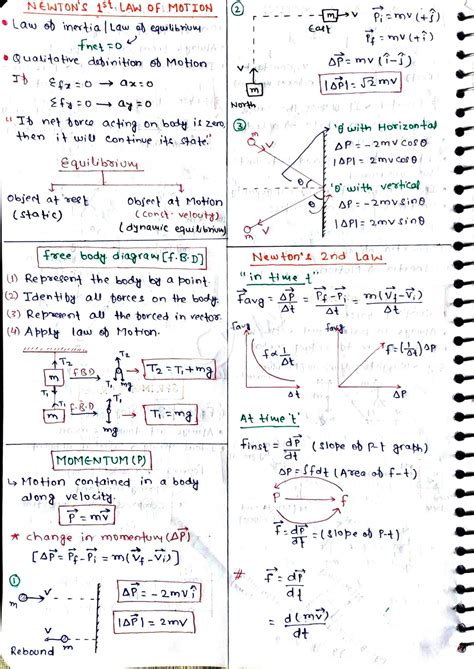 NEWTON'S 1st LAW OF MOTION
• Law of inertia / Law of equilibrium
fnet = 0
• Qualitative definition of Motion
If Σfx = 0 → ax = 0
Σfy = 0 → ay = 0
" If net force acting on body is zero,
then it will continue its state."
Equilibrium
Object at rest
(static)
Object at Motion
(const. velocity)
(dynamic equilibrium)
free body diagram [f.B.D]
(1) Represent the body by a point.
(2) Identify all forces on the body.
(3) Represent all the forced in vector.
(4) Apply law of Motion.
T2
m
f.B.D
T2
T1
mg
T2 = T1 + mg
T1
m
f.B.D
T1
mg
T1 = mg
MOMENTUM (P)
↳ Motion contained in a body
along velocity.
P⃗ = mv⃗
* change in momentum (ΔP⃗)
[ΔP⃗ = P⃗f - P⃗i = m(V⃗f - V⃗i)]
①
m
V
V
m
Rebound
ΔP⃗ = -2mv î
|ΔP⃗| = 2mv
②
m
V
East
V
m
North
P⃗i = mv (+ĵ)
P⃗f = mv (+î)
ΔP⃗ = mv (î - ĵ)
|ΔP⃗| = √2 mv
③
m
V
θ
θ
m
V
'θ' with Horizontal
ΔP = -2mv cosθ
|ΔP| = 2mv cosθ
'θ' with vertical
ΔP = -2mv sinθ
|ΔP| = 2mv sinθ
Newton's 2nd Law
"in time t"
F⃗avg = ΔP⃗/Δt = (P⃗f - P⃗i)/Δt = m(V⃗f - V⃗i)/Δt
favg
f ∝ 1/Δt
Δt
favg
f = (1/Δt) ΔP
ΔP
At time 't'
finst = dP⃗/dt (slope of P-t graph)
ΔP = ∫fdt (Area of f-t)
P
f
f⃗ = dP⃗/dt = (slope of P-t)
# f⃗ = dP⃗/dt
= d(mv⃗)/dt